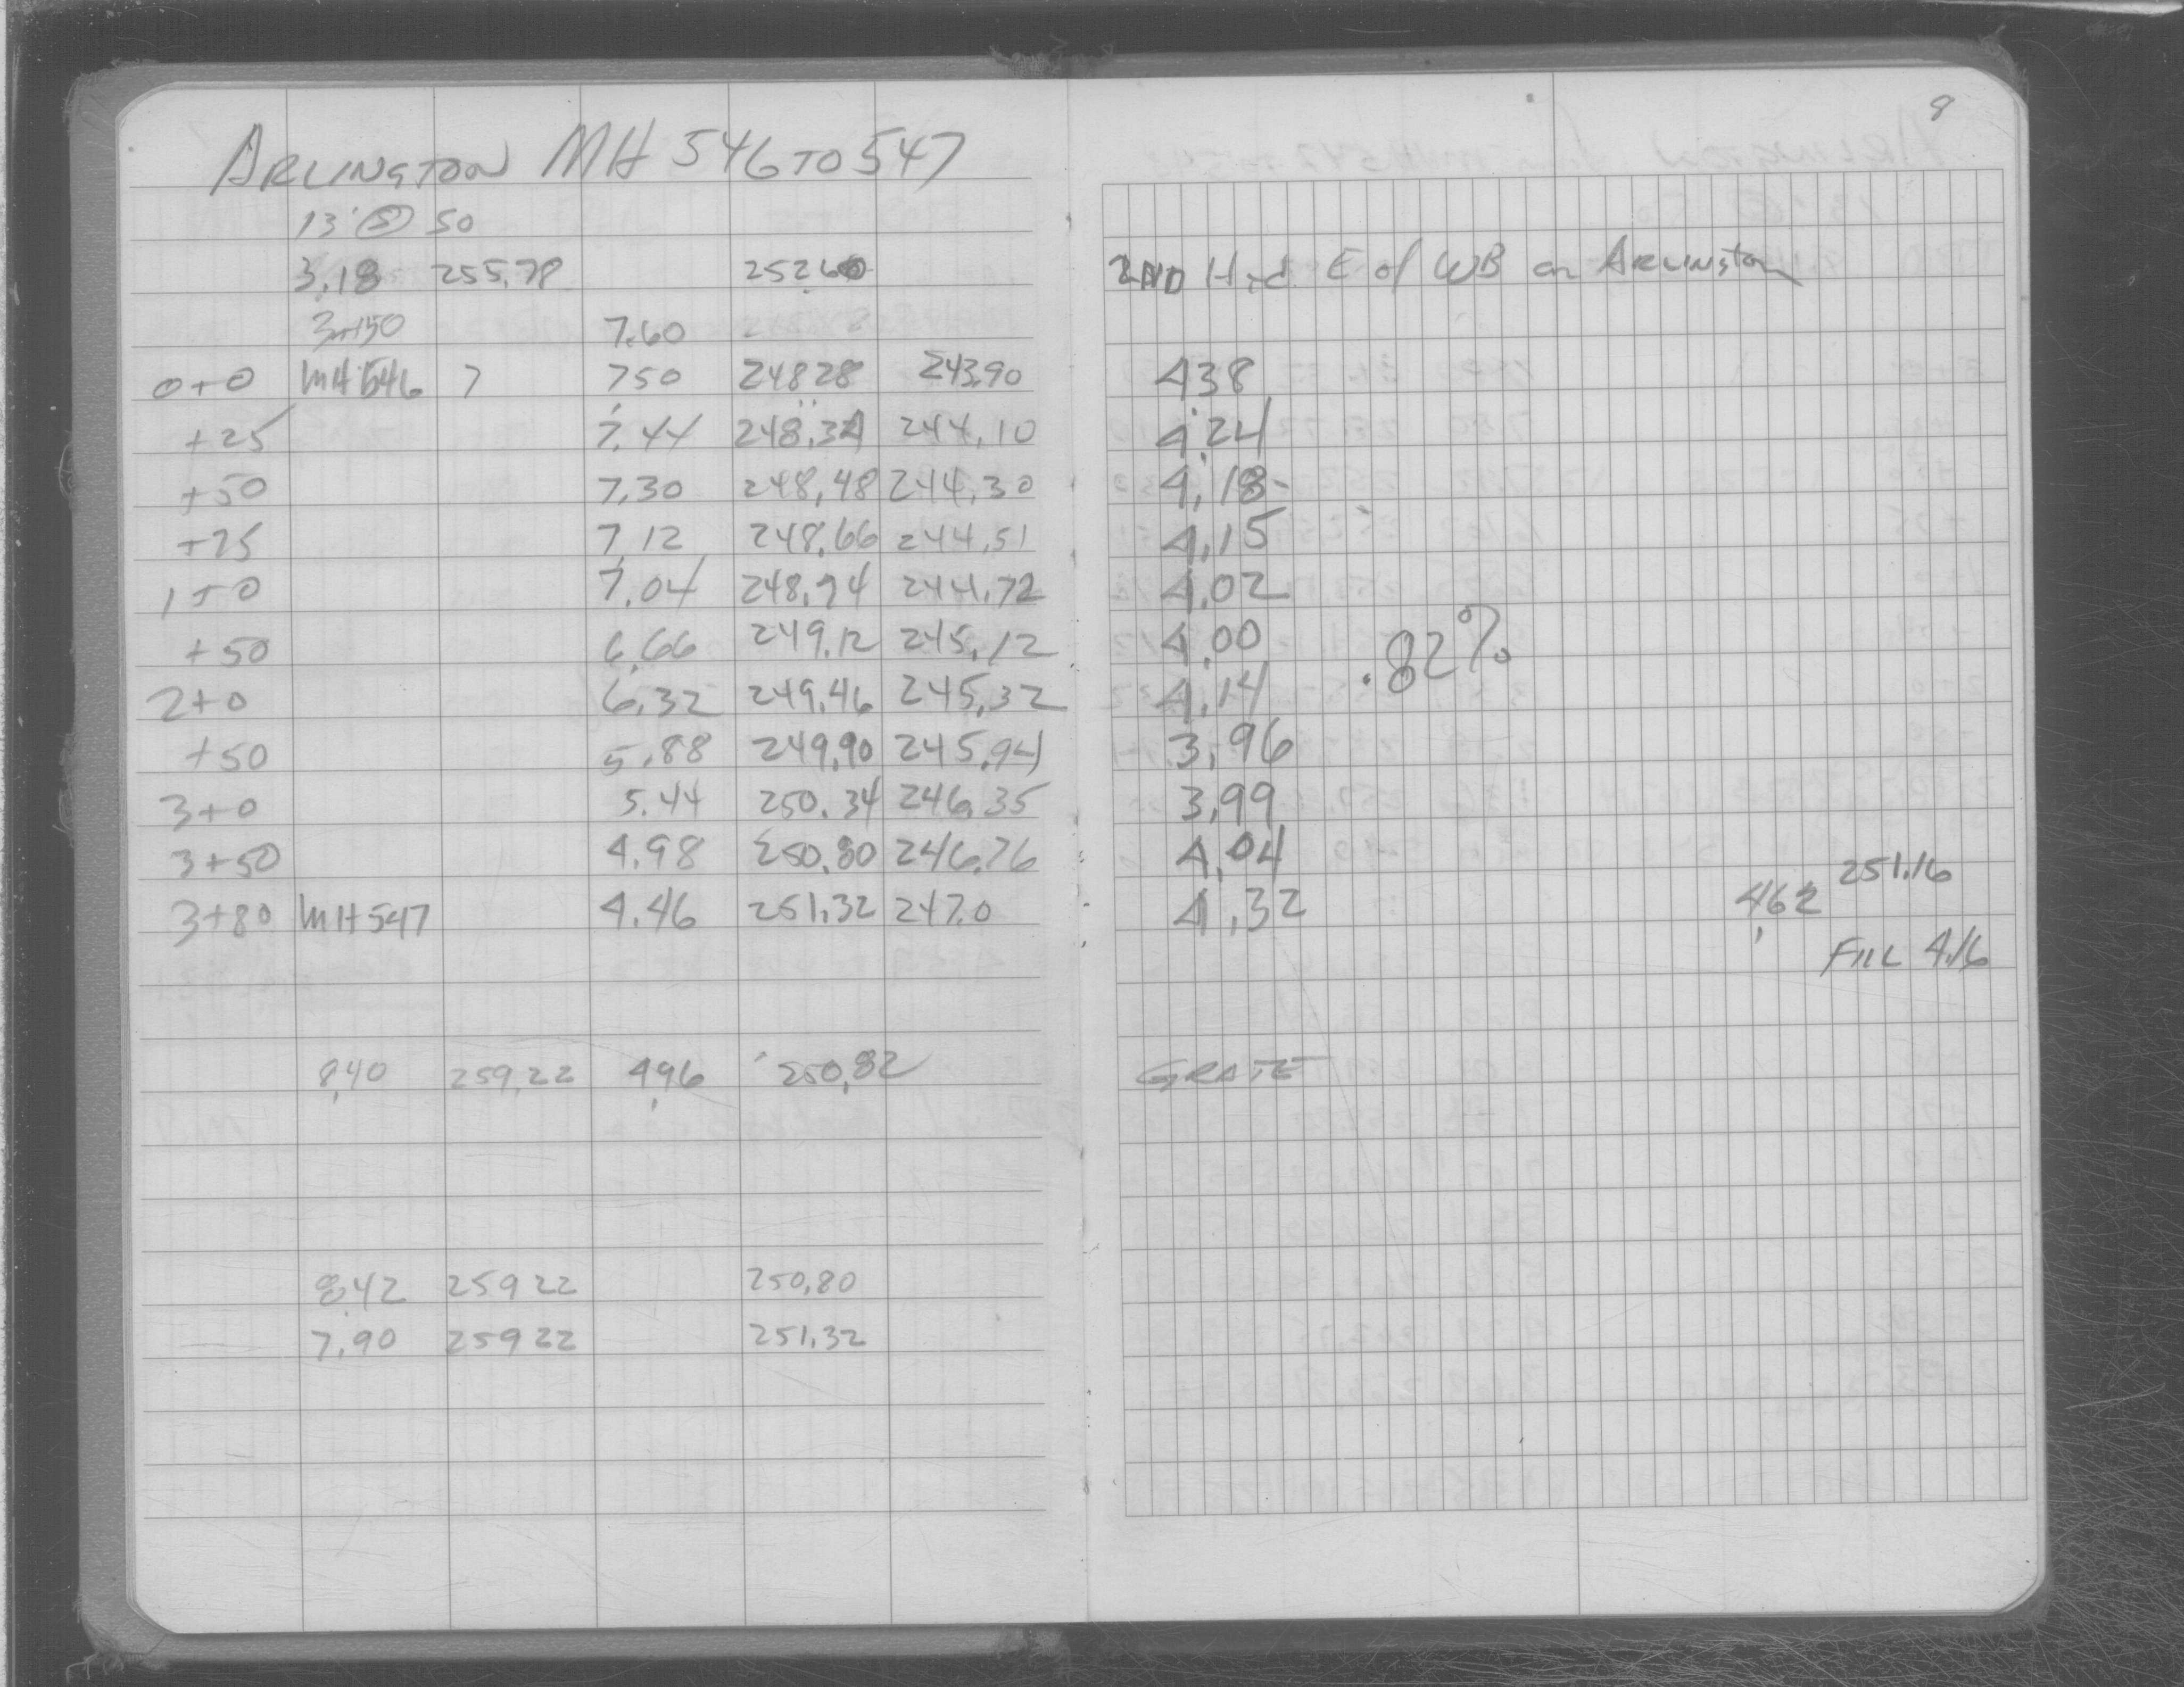 8
ARLINGTON MH 546 TO 547
13' @ 50
3.18 255.78 252.60 2ND Hyd E of WB on ARLINGTON
7.60
0+0 MH 546 7 7.50 248.28 243.90 4.38
+25 7.44 248.34 244.10 4.24
+50 7.30 248.48 244.30 4.18
+75 7.12 248.66 244.51 4.15
1+0 7.04 248.74 244.72 4.02
+50 6.66 249.12 245.12 4.00 .82%
2+0 6.32 249.46 245.32 4.14
+50 5.88 249.90 245.94 3.96
3+0 5.44 250.34 246.35 3.99
3+50 4.98 250.80 246.76 4.04 251.16
3+80 MH 547 4.46 251.32 247.0 4.32 4.62
FILL 4.16
8.40 259.22 4.96 250.82 GRATE
8.42 259 22 250.80
7.90 259 22 251.32